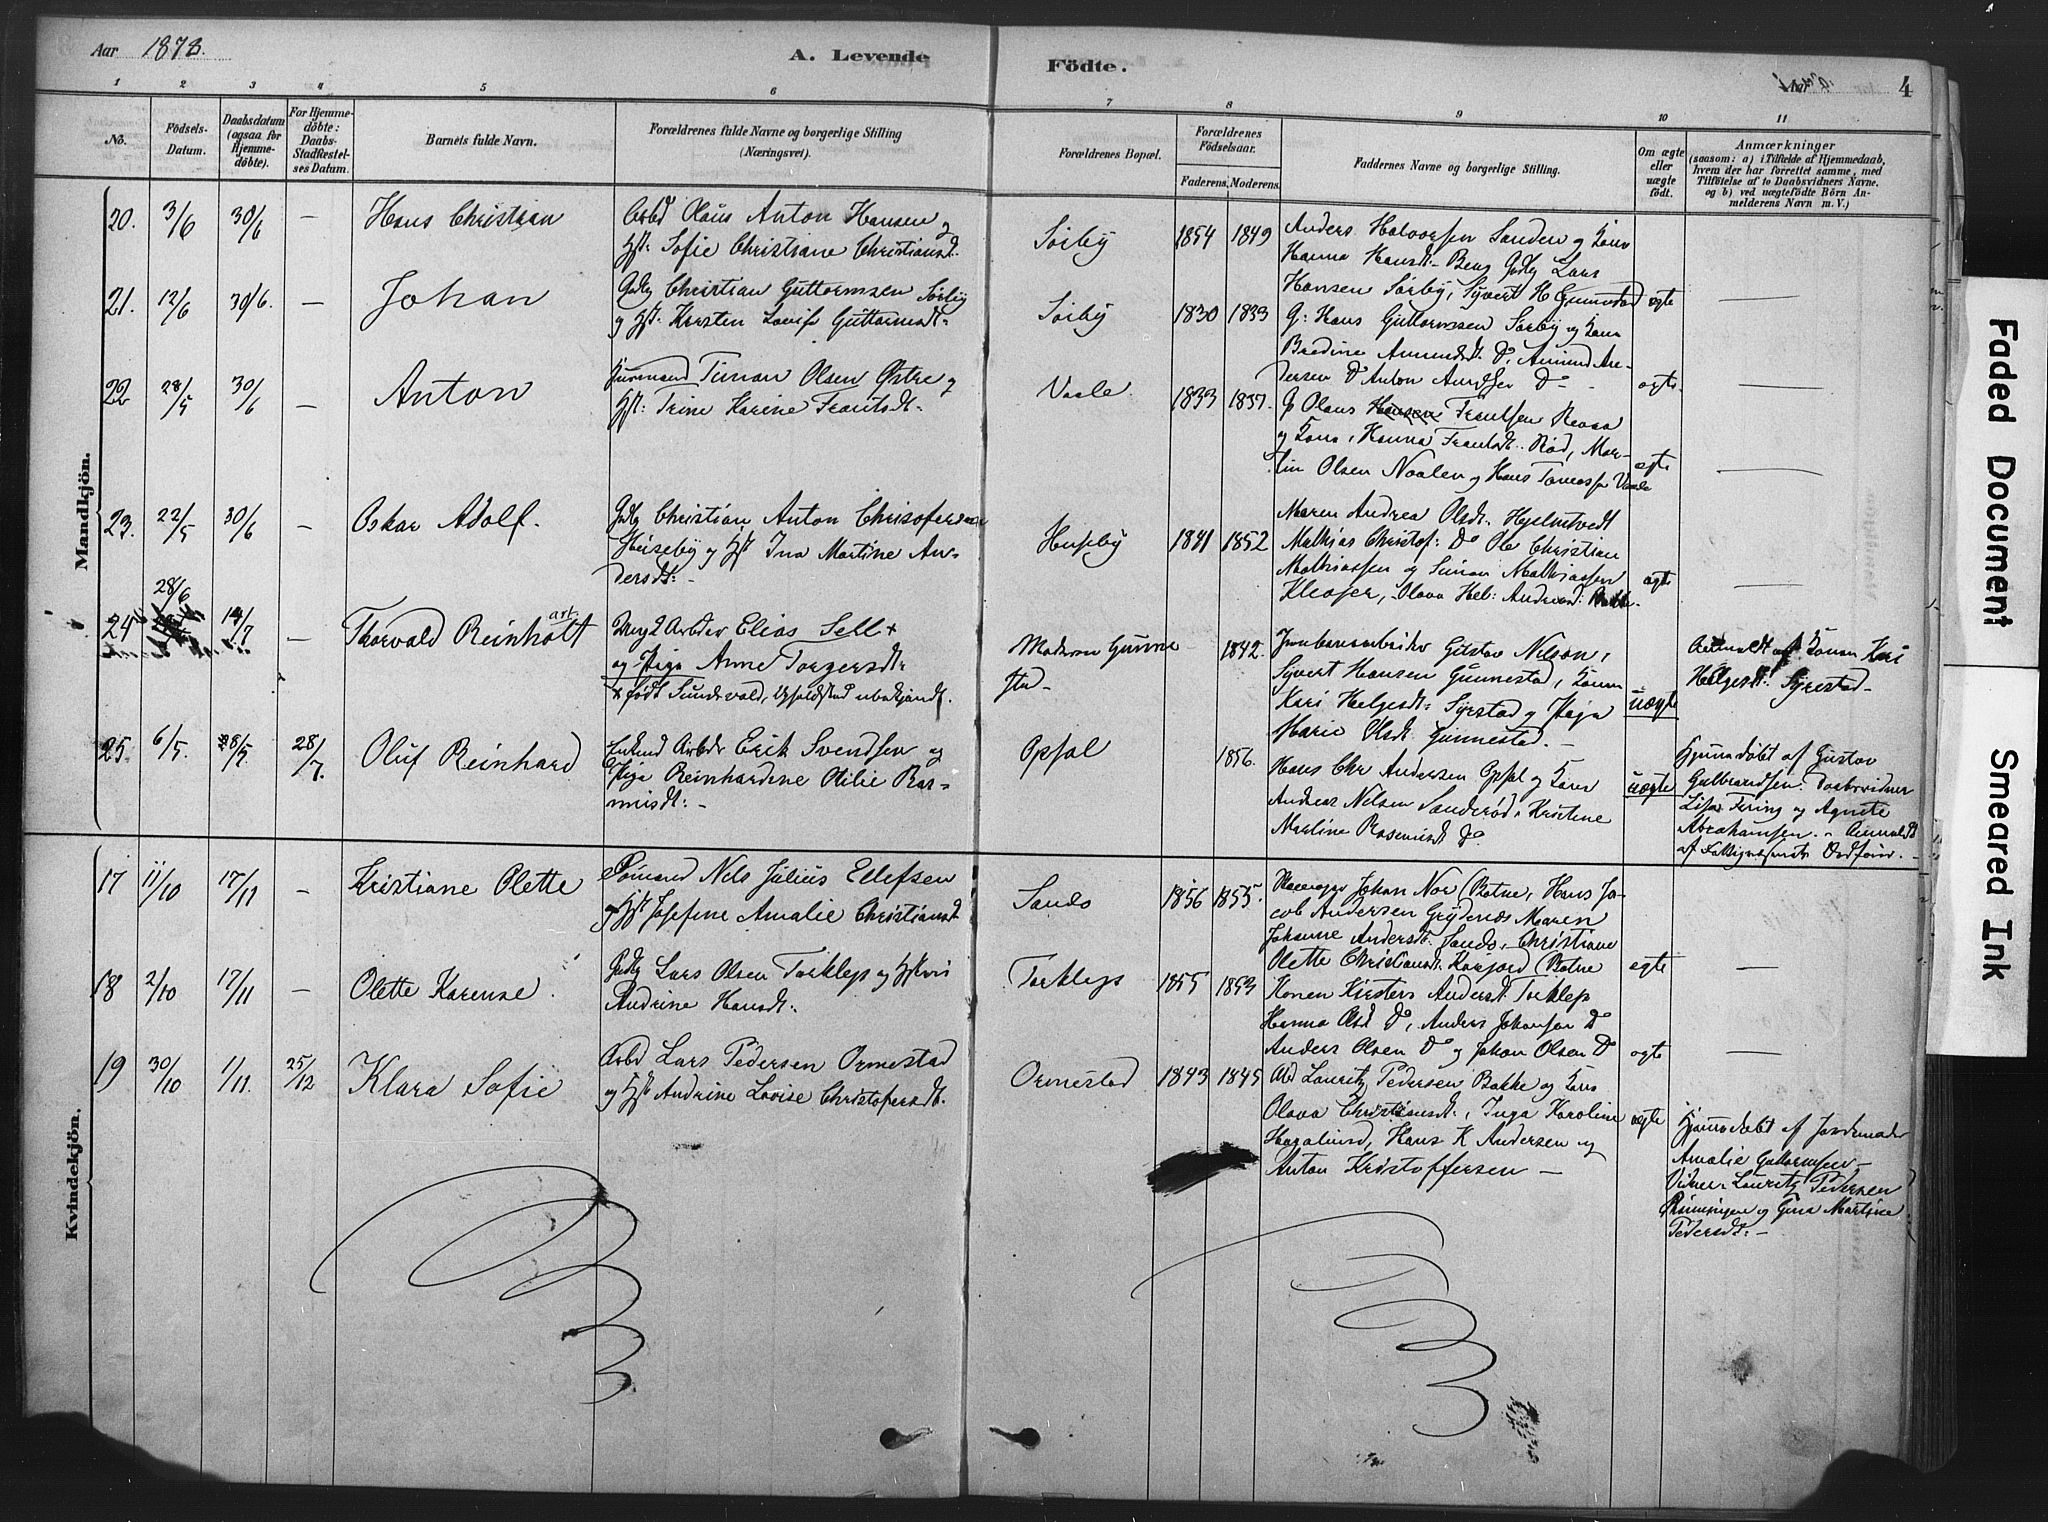 Aar 1878.
A. Levende
Födte.
4
1
2
3
4
5
6
7
8
9
10
11
No.
Födsels-
Datum.
Daabsdatum
(ogsaa for
Hjemme-
döbte).
For Hjemme-
döbte:
Daabs-
Stadfæstel-
ses Datum.
Barnets fulde Navn.
Forældrenes fulde Navne og borgerlige Stilling
(Næringsvei).
Forældrenes Bopæl.
Forældrenes
Födselsaar.
Faderens.
Moderens.
Faddernes Navne og borgerlige Stilling.
Om ægte
eller
uægte
födt.
Anmærkninger
(saasom: a) i Tilfælde af Hjemmedaab,
hvem der har forrettet samme, med
Tilföielse af to Daabsvidners Navne,
og b) ved uægtefödte Börn An-
melderens Navn m. V.)
Mandkjön.
20. 3/6 30/6 — Hans Christian
Arbd Olaus Anton Hansen og
Hst: Sofie Christiane Christiansd.
Sörby 1854 1849
Anders Halvorsen Sanden og Kone
Hanna Hansdt. Gdbg Lars
Hansen Sörby, Syvert H Gunnestad ægte —
21. 12/6 30/6. — Johan
Gdbg Christian Guttormsen Sörby
og Hst: Kirsten Lovise Guttormsdt:
Sörby 1830 1833
G: Hans Guttormsen Sörby og Kone
Bredine Amundsdt. Do, Amund An-
dersen Do Anton Do — ægte —
22 28/5 30/6 — Anton
Huusmand Timan Olsen Østre og
Hst: Trine Karine Frantsdt:
Vaale 1833 1837.
G Olaus Hansen Frantsen Revaa
og Kone, Hanna Frantsdt. Rød, Mar-
tin Olsen Noalen og Hans Vaale ægte —
23. 22/5 30/6 — Oskar Adolf.
Gdbg Christian Anton Chrisofersen
Huseby og Hst Ina Martine An-
dersdt: —
Huseby 1841 1852
Maren Andrea Olsdt. Hjelmtvedt
Mathias Christof: Do Ole Christian
Mathiassen og Simon Mathiassen
Kleoser, Olava Hel: ægte —
24 28/6 14/7 — Thorvald Reinholt
Arbder Elias Sell +
og Pige Anne Torgersdt:
+ født Sundsvald, Opholdsted ubekjendt.
Moderen Gunne-
stad — 1842.
Jernbanearbeider Gustav Nilson,
Syvert Hansen Gunnestad, Konen
Kari Helgesdt: Syrstad og Pige
Marie Olsdt. Gunnestad. — uægte
Anmeldt af Konen Kari
Helgesdt. Syrestad —
25. 6/5. 28/5 28/7. Oluf Reinhard
Enkmd Arbdr Erik Svendsen og
Pige Reinhardine Otilie Ras-
musdt: —
Opsal 1856.
Hans Chr Andersen Opsal og Kone
Andreas Nilsen Sanderød, Kristine
Martine Rasmusdt Do. uægte
Hjemmedøbt af Gustav
Gulbrandsen. Daabsvidner
Lisa Firing og Agnete
Abrahamsen. — Anmeldt
af Ordfører. —
Kvindekjön.
17 11/10 17/11 — Kristiane Olette
Sömand Nils Julius Ellefsen
og Hst Josefine Amalie Christiansd
Sando 1856 1855.
Johan Nor (Botne, Hans Ja-
cob Andersen Grydenæs Maren
Johanne Andersdt. Sando, Christiane
Olette Christiansdt. (Botne ægte —
18 2/10 17/11 — Olette Karense.
Gdbg Lars Olsen Torklep og Hst
Andrine Hansdt:
Torklep 1855 1853
Konen Kirsten Andersdt. Torklep
Hanna Olsd Do, Anders Johansen Do
Anders Olsen Do og Johan Olsen Do ægte —
19 30/10 1/11. 25/12 Klara Sofie
Arbd Lars Pedersen Ormestad
og Hst Andrine Lovise Christofersdt.
Ormestad 1843 1845
Abd Lauritz Pedersen Bakke og Kone
Olava Christiansdt., Inga Karoline
Hans K Andersen og
Anton Kristoffersen — ægte
Hjemmedøbt af Jordemoder
Amalie Guttormsen —
Vidner: Lauritz Pedersen
og Gina Martine
Pedersdt: —
Faded Document
Smeared Ink